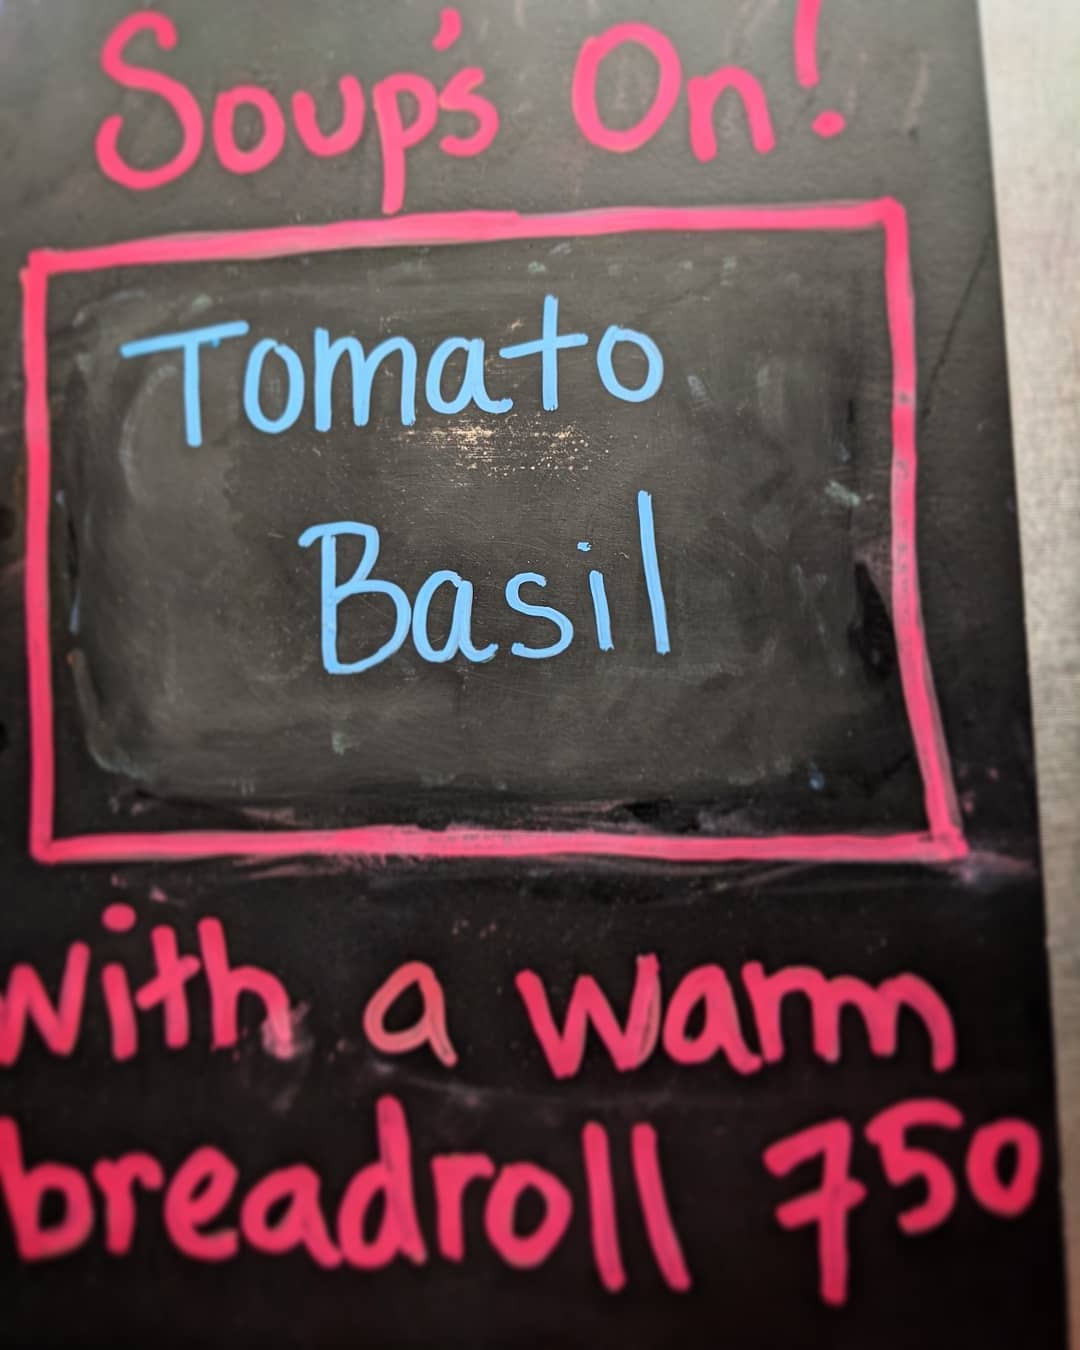 Soup's On!
Tomato
Basil
with a warm
breadroll 750